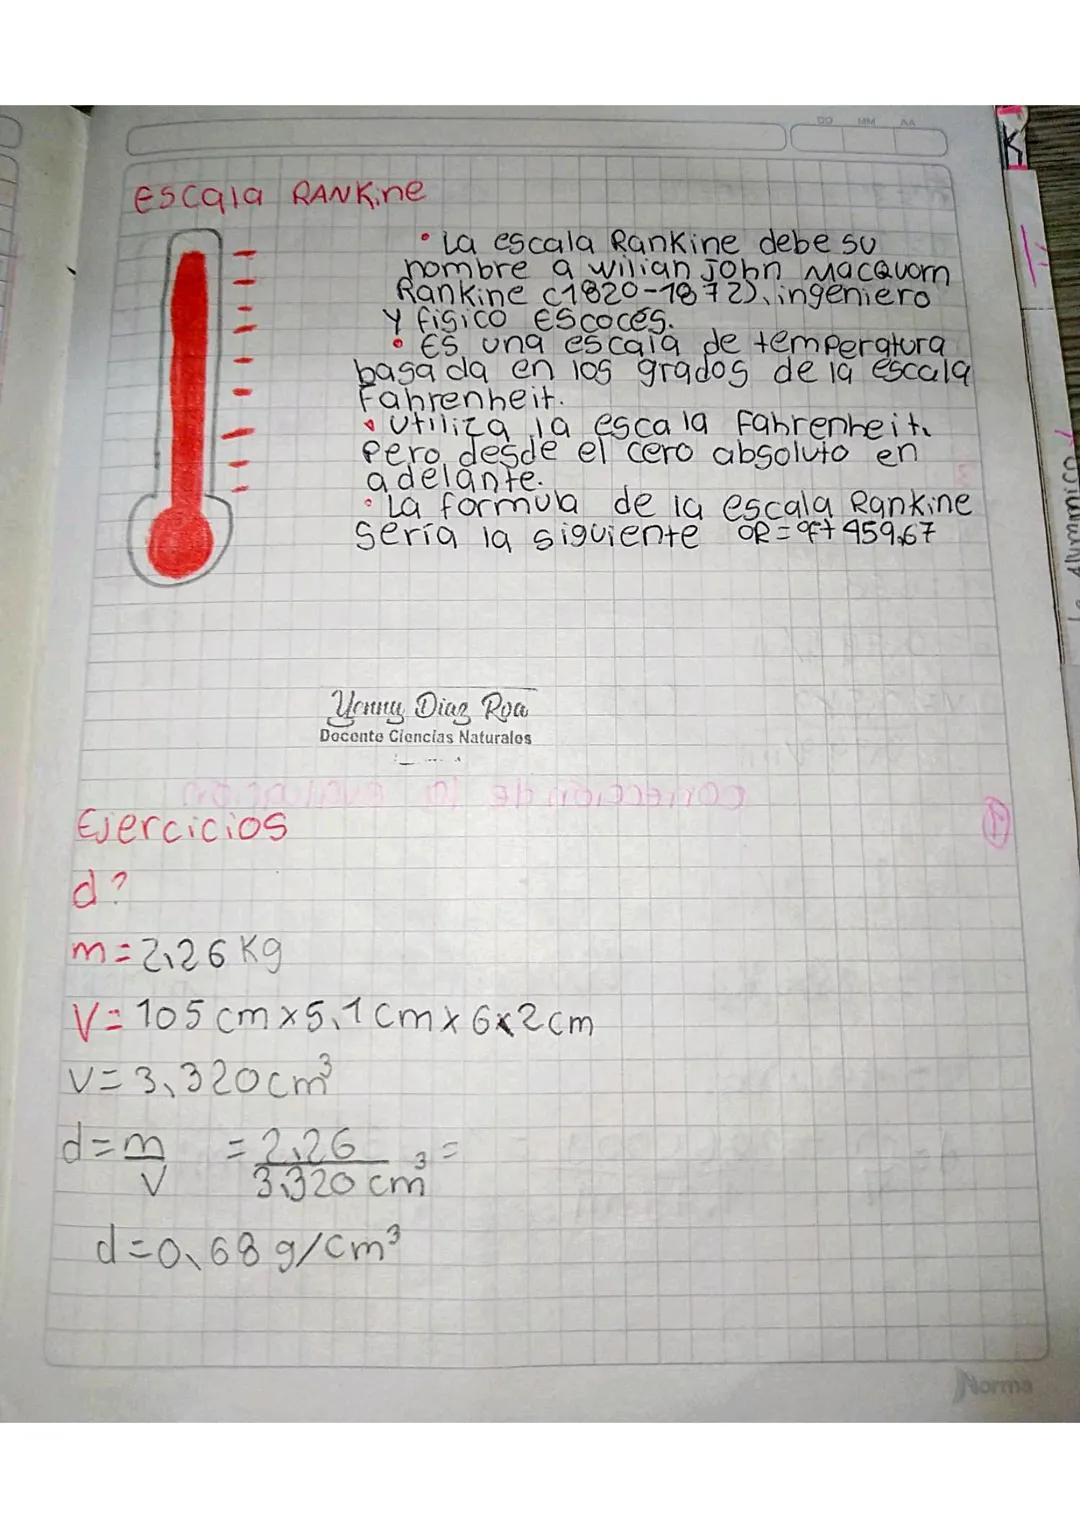 DD MM AA
K
Escala RANKine
• La escala Rankine debe su
nombre a wilian John Macquorn
Rankine (1820-1872), ingeniero
y fisico Escocés.
• Es una escala de temperatura
basada en los grados de la escala
Fahrenheit.
• Utiliza la escala Fahrenheit,
Pero desde el cero absoluto en
adelante.
• La formula de la escala Rankine
sería la siguiente ºR=ºF+459,67
Yenny Diaz Roa
Docente Ciencias Naturales
corrección de la evaluación
1
Ejercicios
d?
m=2,26 Kg
V=105 cm x 5,1 cm x 6x2cm
V=3,320cm³
d=m/V = 2,26/3,320 cm³ =
d=0,68 g/cm³
Norma